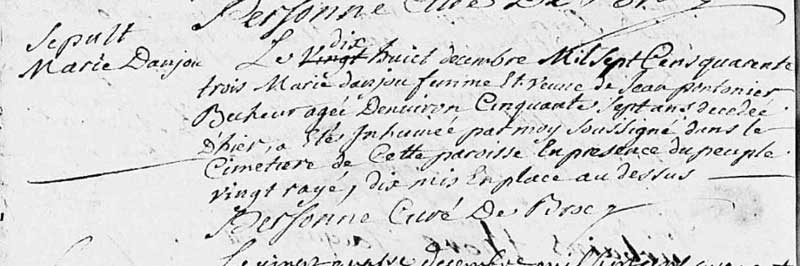 Personne Curé De
Sepult
Marie Danjou
Le vingt dix huict decembre Mil Sept Cens quarente
trois Marie danjou femme Et veuve de Jean pontonier
Becheur agée Denuiron Cinquante Sept ans decedeé
D'hier, a Etés Inhumée par moy Soussigné dans le
Cimetiere de Cette paroisse En presence du peuple
vingt rayé, dix mis En place au dessus
Personne Curé De Broc
Le vingt quatre decembre mil